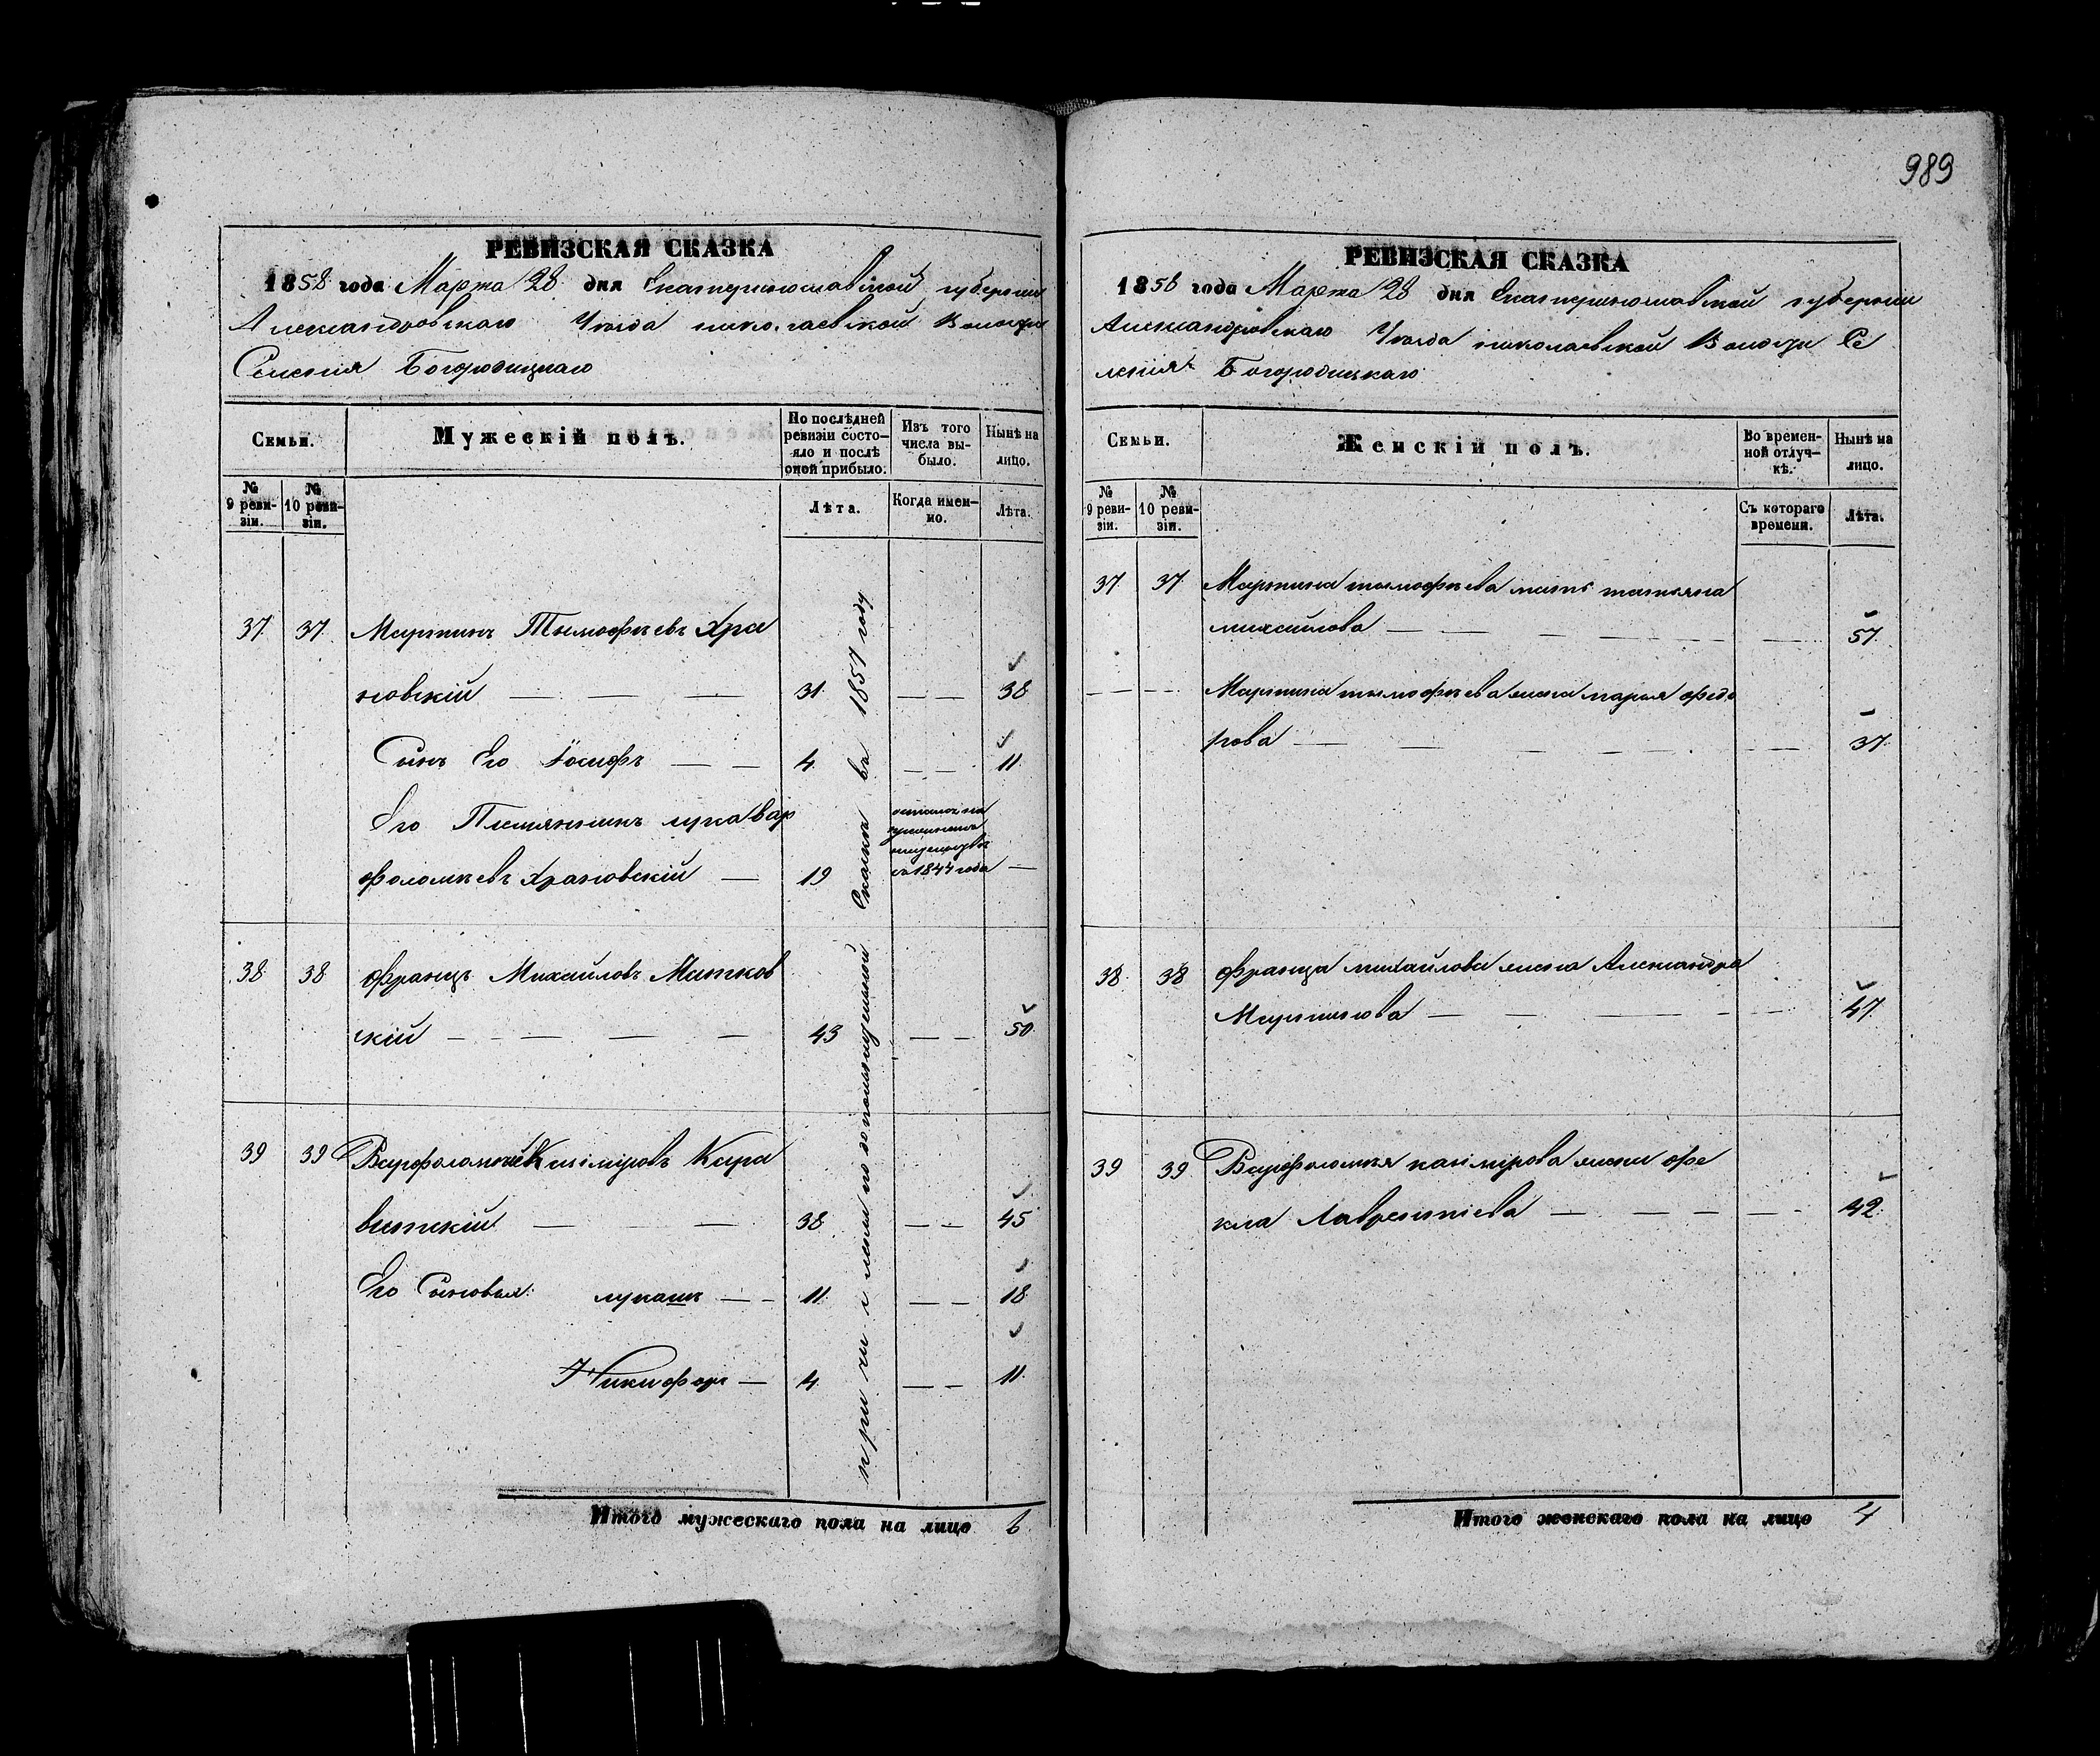 989
РЕВИЗСКАЯ СКАЗКА
1858 года Марта 28 дня Екатеринославской губернии
Александровскаго Уѣзда николаевской Волости
Селенія Богородицкаго
Семьи.
Мужескій полъ.
По послѣдней ревизіи состо-
яло и послѣ
оной прибыло.
Изъ того
числа вы-
было.
Нынѣ на
лицо.
№ 9 реви-
зіи.
№ 10 реви-
зіи.
Лѣта.
Когда имен-
но.
Лѣта.
37 37 Мартинъ Тимофѣевъ Хра
новскій — — — 31 — — 38
Сынъ Его Іосифъ — — 4 — — 11
Его Племянникъ лука Вар
фоломѣевъ Храновскій — 19 с 1844 года —
38 38 францъ Михайловъ Матков
скій — - — — — 43 — — 50
39 39 Варфоломей Казиміровъ Кара
витскій — — 38 — — 45
Его Сыновья: лукашъ — - 11 — — 18
Никифоръ — 4 — — 11
причислены по дополнительной Сказкѣ въ 1857 году
Итого мужескаго пола на лицо 6
РЕВИЗСКАЯ СКАЗКА
1858 года Марта 28 дня Екатеринославской губернии
Александровскаго Уѣзда николаевской Волости Се
ленія Богородицкаго
Семьи.
Женскій полъ.
Во времен-
ной отлуч-
кѣ.
Нынѣ на
лицо.
№ 9 реви-
зіи.
№ 10 реви-
зіи.
Съ котораго
времени.
Лѣта.
37 37 Мартина тимофѣева мать татьяна
михайлова — — - — — — — 57
Мартина тимофѣева жена марья федо
рова — — — — — — — 37
38 38 франца михайлова жена Александра
Мартинова — — — — - - 47
39 39 Варфоломея казимірова жена фе
кла Лаврентіева — — — — — - 42
Итого женскаго пола на лицо 4